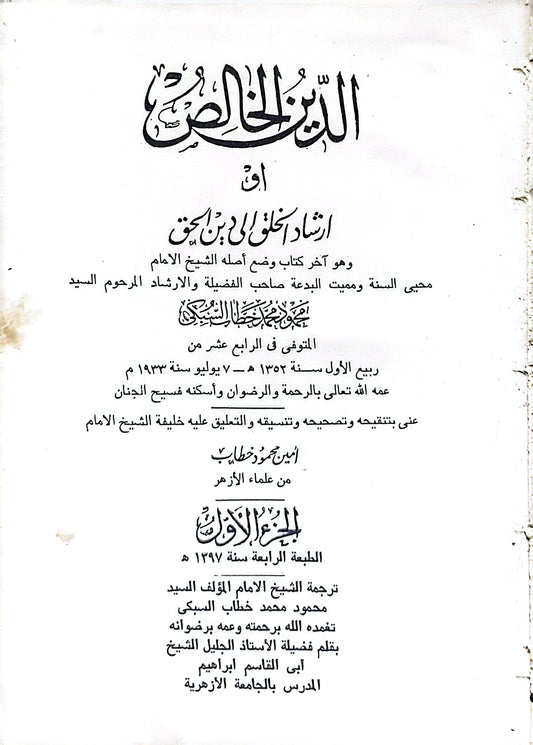 الدين الخالص
أو
ارشاد الخلق إلى دين الحق
وهو آخر كتاب وضع أصله الشيخ الامام
محيى السنة ومميت البدعة صاحب الفضيلة والارشاد المرحوم السيد
محمود محمد خطاب السبكى
المتوفى فى الرابع عشر من
ربيع الأول سـنة ١٣٥٢ هـ - ٧ يوليو سنة ١٩٣٣ م
عمه الله تعالى بالرحمة والرضوان وأسكنه فسيح الجنان
عنى بتنقيحه وتصحيحه وتنسيقه والتعليق عليه خليفة الشيخ الامام
أمين محمود خطاب
من علماء الأزهر
الجزء الأول
الطبعة الرابعة سنة ١٣٩٧ هـ
ترجمة الشيخ الامام المؤلف السيد
محمود محمد خطاب السبكى
تغمده الله برحمته وعمه برضوانه
بقلم فضيلة الأستاذ الجليل الشيخ
أبى القاسم ابراهيم
المدرس بالجامعة الأزهرية